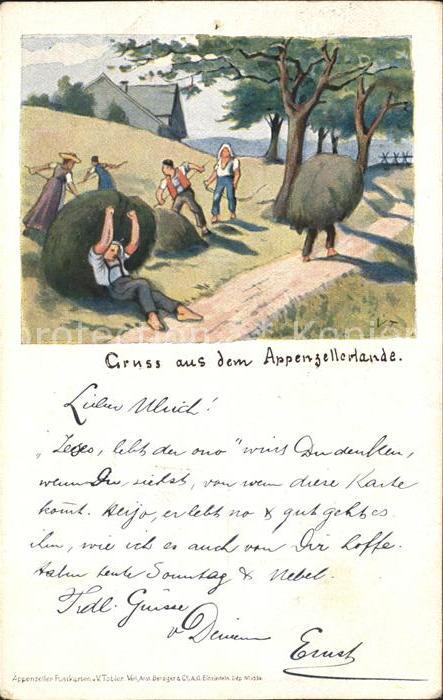 V.T.
Gruss aus dem Appenzellerlande.
Lieber Ulrich!
"Jeses, lebt der ono" wirst Du denken,
wenn Du siehst, von wem diese Karte
kommt. Heijo, er lebt no & gut geht es
ihm, wie ich es auch von Dir hoffe.
Haben heute Sonntag & Nebel.
Frdl. Grüsse
v Deinem
Ernst
Appenzeller Postkarten v. V. Tobler. Verl. Anst. Benziger & Co. A.G. Einsiedeln. Dép.